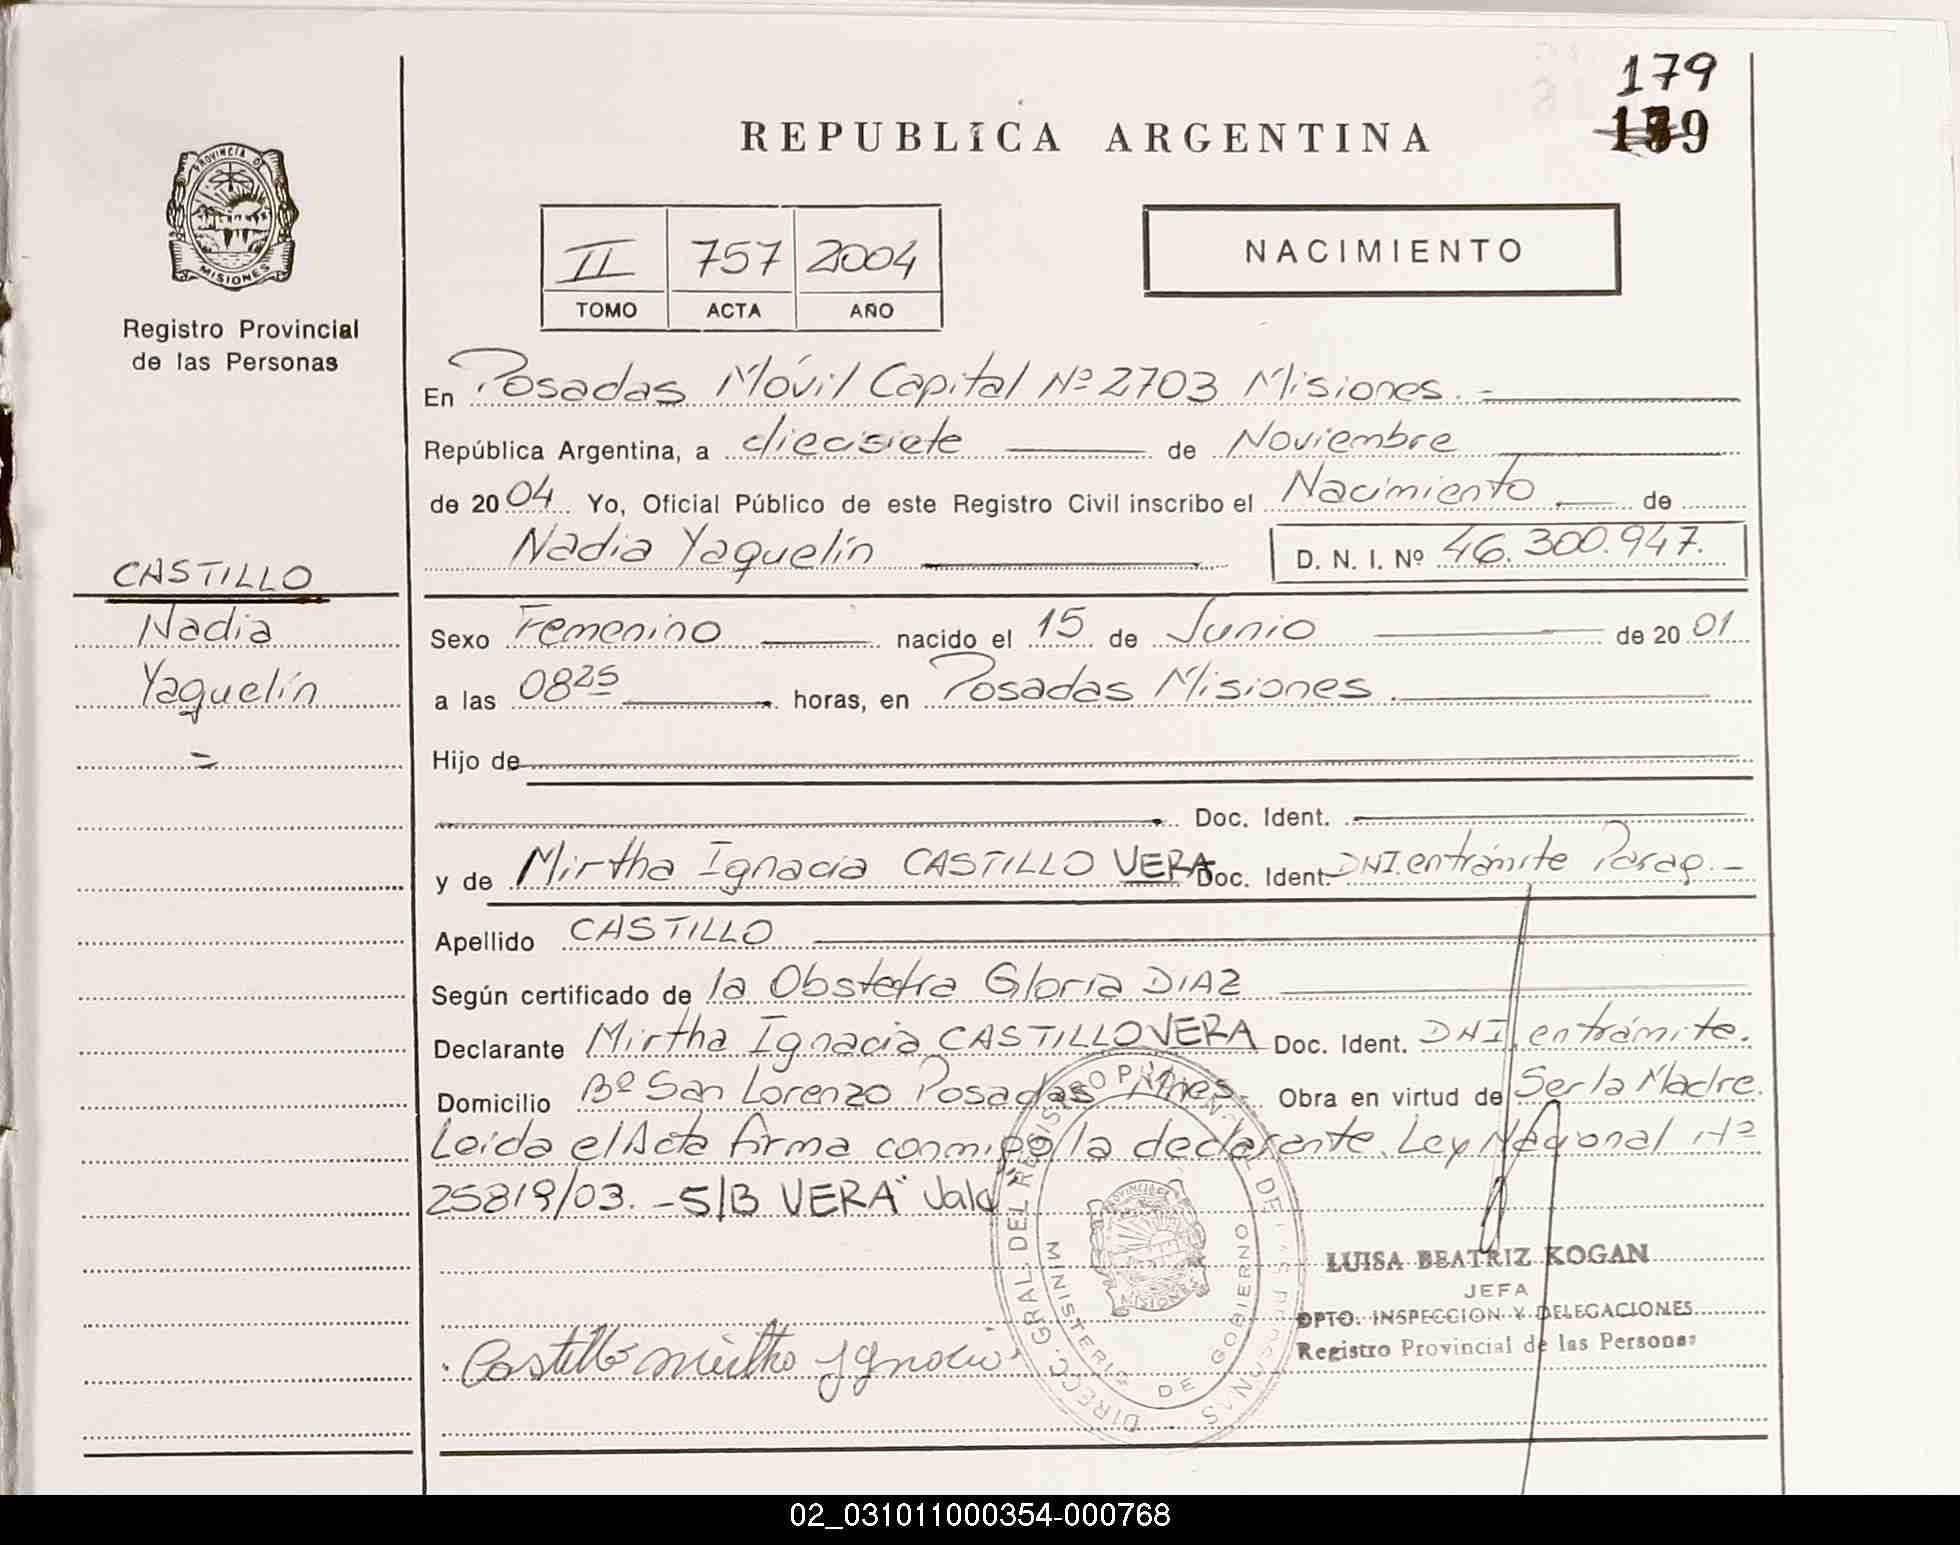 179
139
REPUBLICA ARGENTINA
PROVINCIA DE
MISIONES
Registro Provincial
de las Personas
II 757 2004
TOMO ACTA AÑO
NACIMIENTO
En Posadas Móvil Capital Nº 2703 Misiones.-
República Argentina, a diecisiete de Noviembre
de 2004 Yo, Oficial Público de este Registro Civil inscribo el Nacimiento de
Nadia Yaquelín D. N. I. Nº 46.300.947.
CASTILLO
Nadia
Yaquelín
=
Sexo Femenino nacido el 15 de Junio de 2001
a las 0825 horas, en Posadas Misiones.
Hijo de
Doc. Ident.
y de Mirtha Ignacia CASTILLO VERA Doc. Ident. DNI. en trámite Parag.-
Apellido CASTILLO
Según certificado de la Obstetra Gloria DIAZ
Declarante Mirtha Ignacia CASTILLO VERA Doc. Ident. DNI. en trámite.
Domicilio Bº San Lorenzo Posadas Mnes. Obra en virtud de Ser la Madre.
Leida el Acta firma conmigo la declarante. Ley Nacional Nº
25819/03. - S/B VERA" Vale
DIRECC. GRAL DEL REGISTRO PROVINCIAL DE LAS PERSONAS
MINISTERIO DE GOBIERNO
MISIONES
LUISA BEATRIZ KOGAN
JEFA
DPTO. INSPECCION Y DELEGACIONES
Registro Provincial de las Personas
Castillo mirtha Ygnacia
02_031011000354-000768